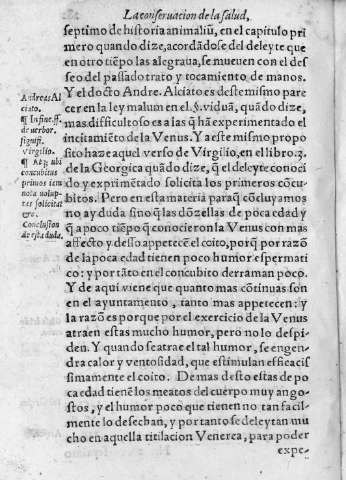 La conseruacion de la salud,
septimo de historia animaliũ, en el capitulo pri
mero quando dize, acordãdose del deleyte que
en otro tiẽpo las alegraua, se mueuen con el des
seo del passado trato y tocamiento de manos.
Y el docto Andre. Alciato es deste mismo pare
cer en la ley malum en el §. viduã, quãdo dize,
mas difficultoso es a las q̃ hã experimentado el
incitamiẽto de la Venus. Y a este mismo propo
sito haze aquel verso de Virgilio, en el libro. 3.
de la Georgica quãdo dize, q̃ el deleyte conoci
do y exprimẽtado solicita los primeros cõcu-
bitos. Pero en esta materia paraq̃ cõcluyamos
no ay duda sino q̃ las dõzellas de poca edad y
q̃ a poco tiẽpo q̃ conocieron la Venus con mas
affecto y desseo appetecẽ el coito, porq̃ por razõ
de la poca edad tienen poco humor espermati
co: y por tãto en el concubito derraman poco.
Y de aqui viene que quanto mas cõtinuas son
en el ayuntamento, tanto mas appetecen: y
la razõ es porque por el exercicio de la Venus
atraen estas mucho humor, pero no lo despi-
den. Y quando se atrae el tal humor, se engen
dra calor y ventosidad, que estimulan efficacis
simamente el coito. De mas desto estas de po
ca edad tienẽ los meatos del cuerpo muy ango
stos, y el humor poco que tienen no tan facil-
mente lo desechan, y por tanto se deleytan mu
cho en aquella titilacion Venerea, para poder
expe-
Andreas Al
ciato.
¶ In fine. ff.
de verbor.
signifi.
Virgilio.
concubitus
primos iam
nota volup-
tas solicitat
Conclusion
de esta duda.